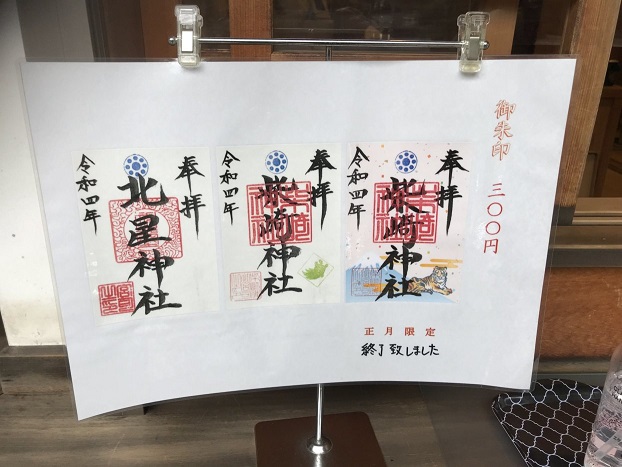 御朱印 三〇〇円
奉拝
柴崎神社
令和四年
奉拝
柴崎神社
令和四年
奉拝
北星神社
令和四年
正月限定
終了致しました